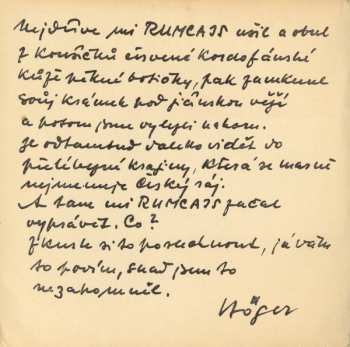 Nejdříve mi RUMCAJS ušil a obul
z kousíčků červené kordofánské
kůže pěkné botičky, pak zamknul
svůj krámek pod jičínskou věží
a potom jsme vylezli nahoru.
Je odtamtud daleko vidět do
přelíbezné krajiny, která se
nejmenuje Český ráj.
A tam mi RUMCAJS začal
vyprávět. Co?
Zkuste si to poslechnout, já vám
to povím, snad jsem to
nezapomněl.
Höger